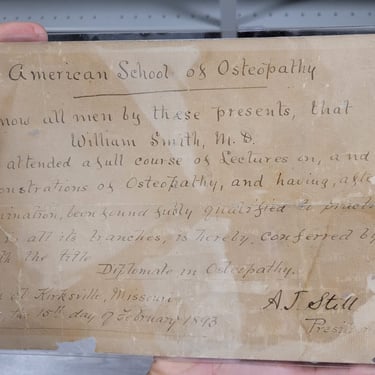 American School of Osteopathy
now all men by these presents, that
William Smith, M.D.
attended a full course of Lectures on, and
onstrations of Osteopathy, and having, afte
mination, been found fully qualified to practic
in all its branches, is hereby, conferred by
th the title
Diplomate in Osteopathy.
at Kirksville, Missouri
the 15th day of February 1893
A.T. Still
Presi